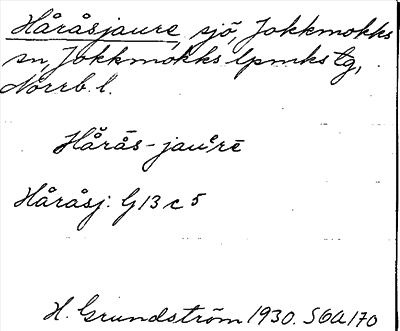 Håråsjaure, sjö, Jokkmokks
sn, Jokkmokks lpmks tg,
Norrb. l.
Hårås-jauᵉrē
Håråsj: G 13 c 5
H. Grundström 1930. SOA 170